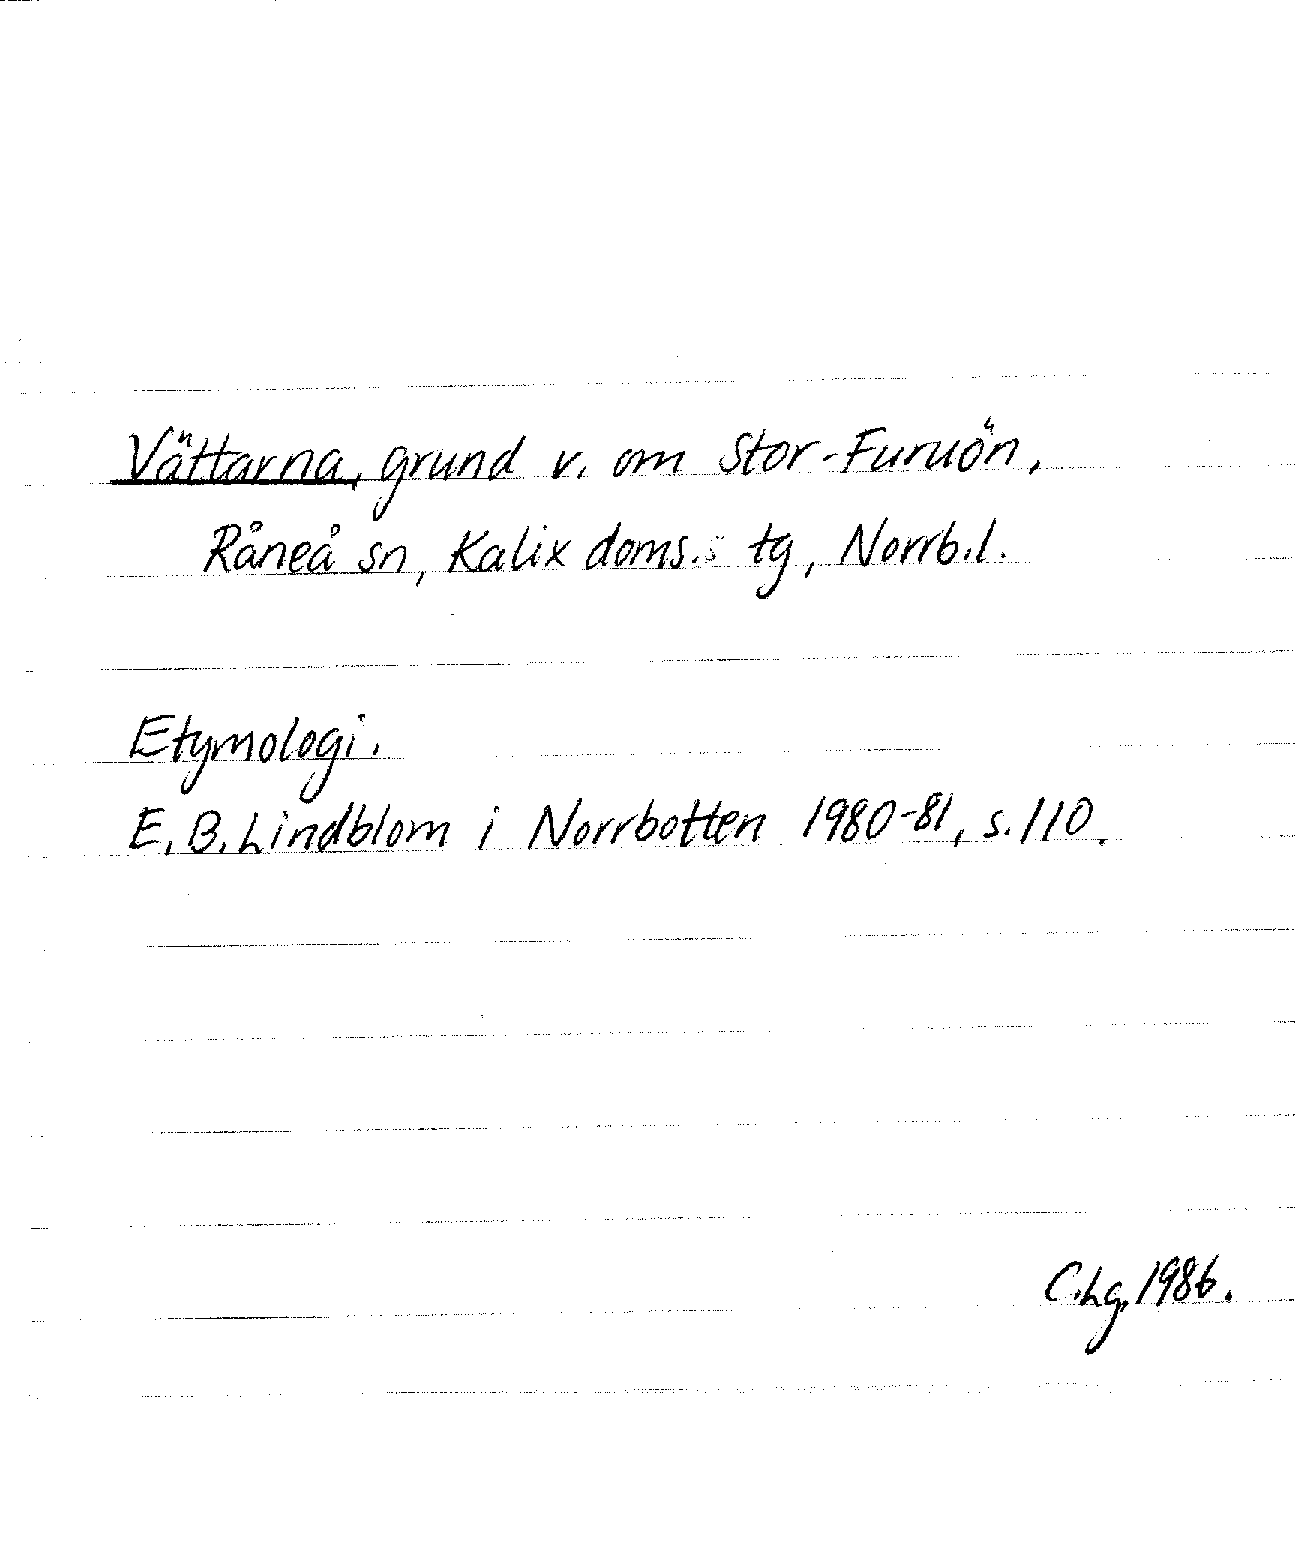 Vättarna, grund v. om Stor-Furuön,
Råneå sn, Kalix doms. tg, Norrb.l.
Etymologi.
E.B.Lindblom i Norrbotten 1980-81, s.110.
C.Lg, 1986.